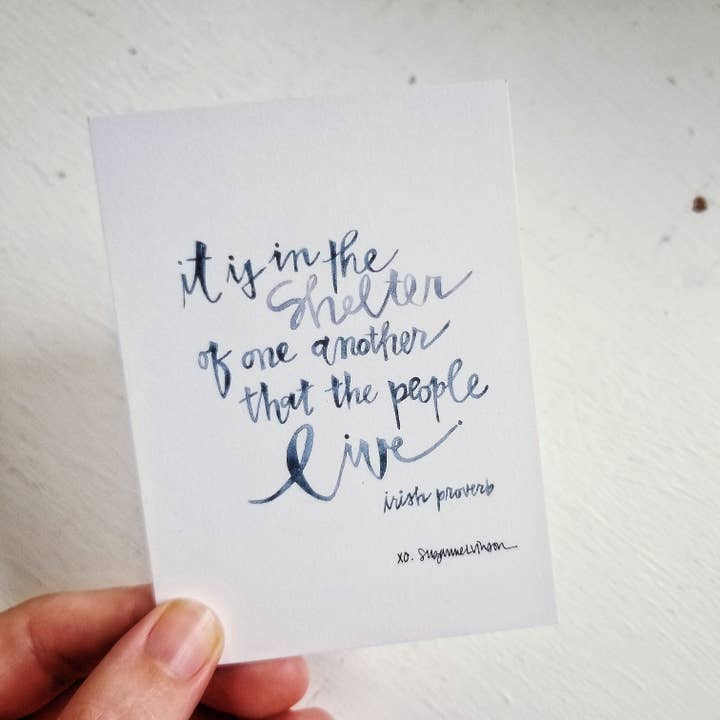 it is in the
Shelter
of one another
that the people
live.
irish proverb
xo. suzannelvinson